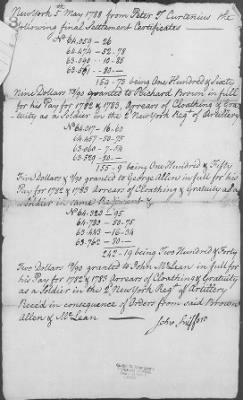 New York 5th May 1788 from Peter T Curtenius the
following final Settlement Certificates
No 64.059 - 26
64.474 - 52.78
63.040 - 10.85
80
being One Hundred & Sixty
Nine Dollars 73/90 granted to Richard Brown in full
for his Pay for 1782 & 1783, Arrears of Cloathing & Gra-
tuity as a Soldier in the 2d New York Regt of Artillery
No 64.017 - 16.60
64.457 - 50.75
63.060 - 7.54
63.529 - 80
155 .. 9 being One Hundred & Fifty
Five Dollars 9/90 granted to George Allen in full for his
Pay for 1782 & 1783 Arrears of Cloathing & Gratuity as a
Soldier in same Regiment &
- 95
64.783 - 50.75
63.443 - 16.34
63.762 - 80
242 .. 19 being Two Hundred & Forty
Two Dollars 19/90 granted to John McLean in full for
his Pay for 1782 & 1783 Arrears of Cloathing & Gratuity
as a Soldier in the 2d New York Regt of Artillery
Recd in consequence of Orders from said Brown
Allen & McLean
John